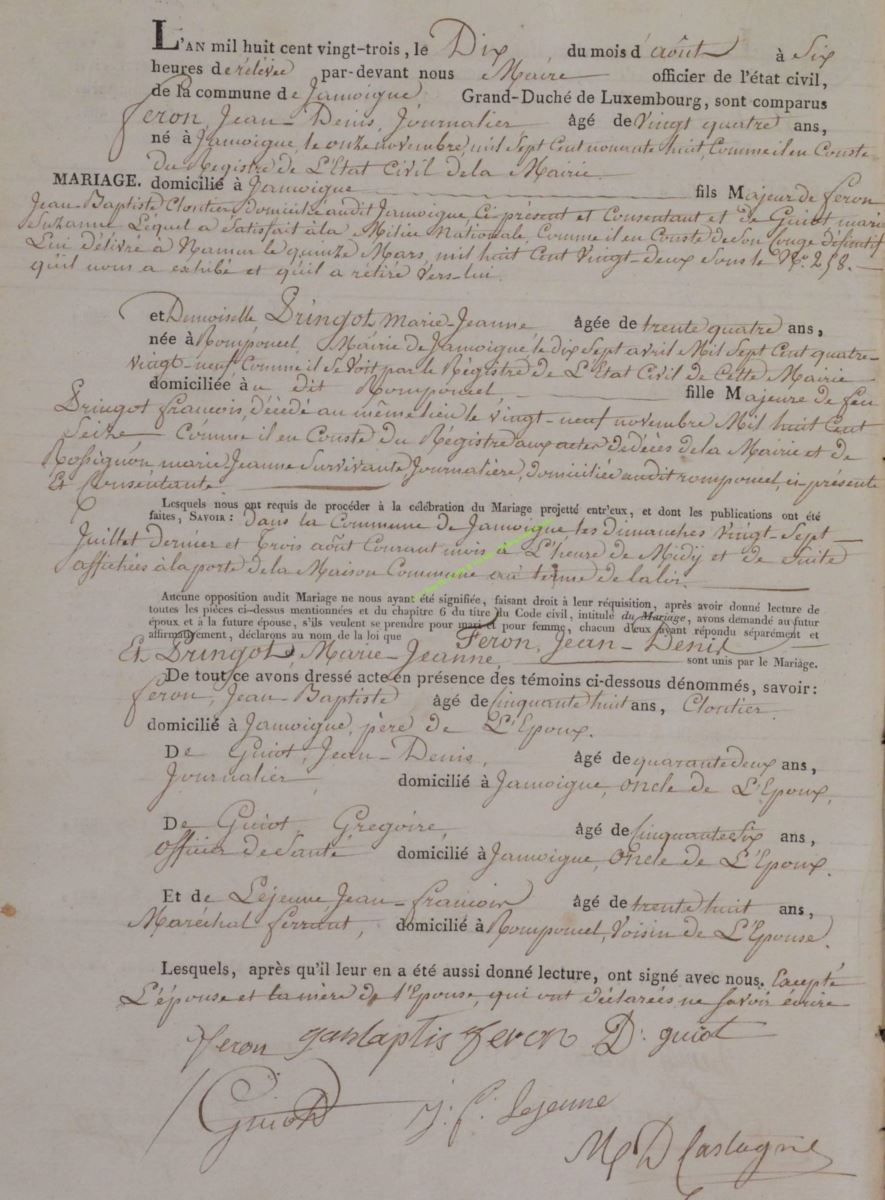 L'AN mil huit cent vingt-trois, le Dix du mois d'août à Six
heures de rélévée par-devant nous Maire officier de l'état civil,
de la commune de Jamoigne Grand-Duché de Luxembourg, sont comparus
feron, Jean-Denis, Journalier âgé de vingt quatre ans,
né à Jamoigne, le onze novembre, mil Sept Cent nonante huit, Comme il en Conste
du Registre de L'Etat Civil de la Mairie
MARIAGE. domicilié à Jamoigne fils Majeur de feron
Jean-Baptiste Cloutier, domicilié audit Jamoigne, Ci-présent et Consentant et de Guiot marie
Suzanne Lequel a Satisfait à la Milice Nationale, Comme il en Conste de Son Congé définitif
Lui délivré à Namur le quinze Mars, mil huit Cent Vingt-deux sous le No. 258.
qu'il nous a exhibé et qu'il a rétiré vers-lui.
et Demoiselle Dringot, Marie-Jeanne âgée de trente quatre ans,
née à Romponcel, Mairie de Jamoigne, le dix Sept avril Mil Sept Cent quatre-
vingt-neuf, Comme il Se Voit par le Régistre de L'Etat Civil de Cette Mairie
domiciliée à u dit Romponcel, fille Majeure de feu
Dringot francois, décédé au même lieu le vingt-neuf novembre Mil huit Cent
Seize Comme il en Conste du Régistre aux actes de décès de la Mairie et de
Rossignon, marie Jeanne Survivante Journalière, domiciliée audit romponcel, ci-présente
Et Consentante
Lesquels nous ont requis de procéder à la célébration du Mariage projetté entr'eux, et dont les publications ont été
faites, SAVOIR: dans la Commune de Jamoigne les Dimanches vingt-Sept
Juillet dernier et Trois août Courant mois à L'heure de Midy et de Suite
affichées à la porte de la Maison Commune au terme de la loi.
Aucune opposition audit Mariage ne nous ayant été signifiée, faisant droit à leur réquisition, après avoir donné lecture de
toutes les pièces ci-dessus mentionnées et du chapitre 6 du titre du Code civil, intitulé du Mariage, avons demandé au futur
époux et à la future épouse, s'ils veulent se prendre pour mari et pour femme, chacun d'eux ayant répondu séparément et
affirmativement, déclarons au nom de la loi que Feron, Jean-Denis
Et Dringot, Marie-Jeanne, sont unis par le Mariage.
De tout ce avons dressé acte en présence des témoins ci-dessous dénommés, savoir:
feron, Jean-Baptiste âgé de Cinquante huit ans, Cloutier
domicilié à Jamoigne, père de L'Epoux.
De Guiot, Jean-Denis, âgé de quarante deux ans,
Journalier, domicilié à Jamoigne, oncle de L'Epoux,
De Guiot Grégoire, âgé de Cinquante Six ans,
officier de Santé domicilié à Jamoigne, Oncle de L'Epoux.
Et de Lejeune Jean-francois âgé de trente huit ans,
Maréchal ferrant, domicilié à Romponcel, Voisin de L'Epouse.
Lesquels, après qu'il leur en a été aussi donné lecture, ont signé avec nous. Excepté
L'épouse et la mère de l'Epouse, qui ont déclarées ne Savoir écrire
feron janbaptis feron D. guiot
Guiot J. f. Lejeune